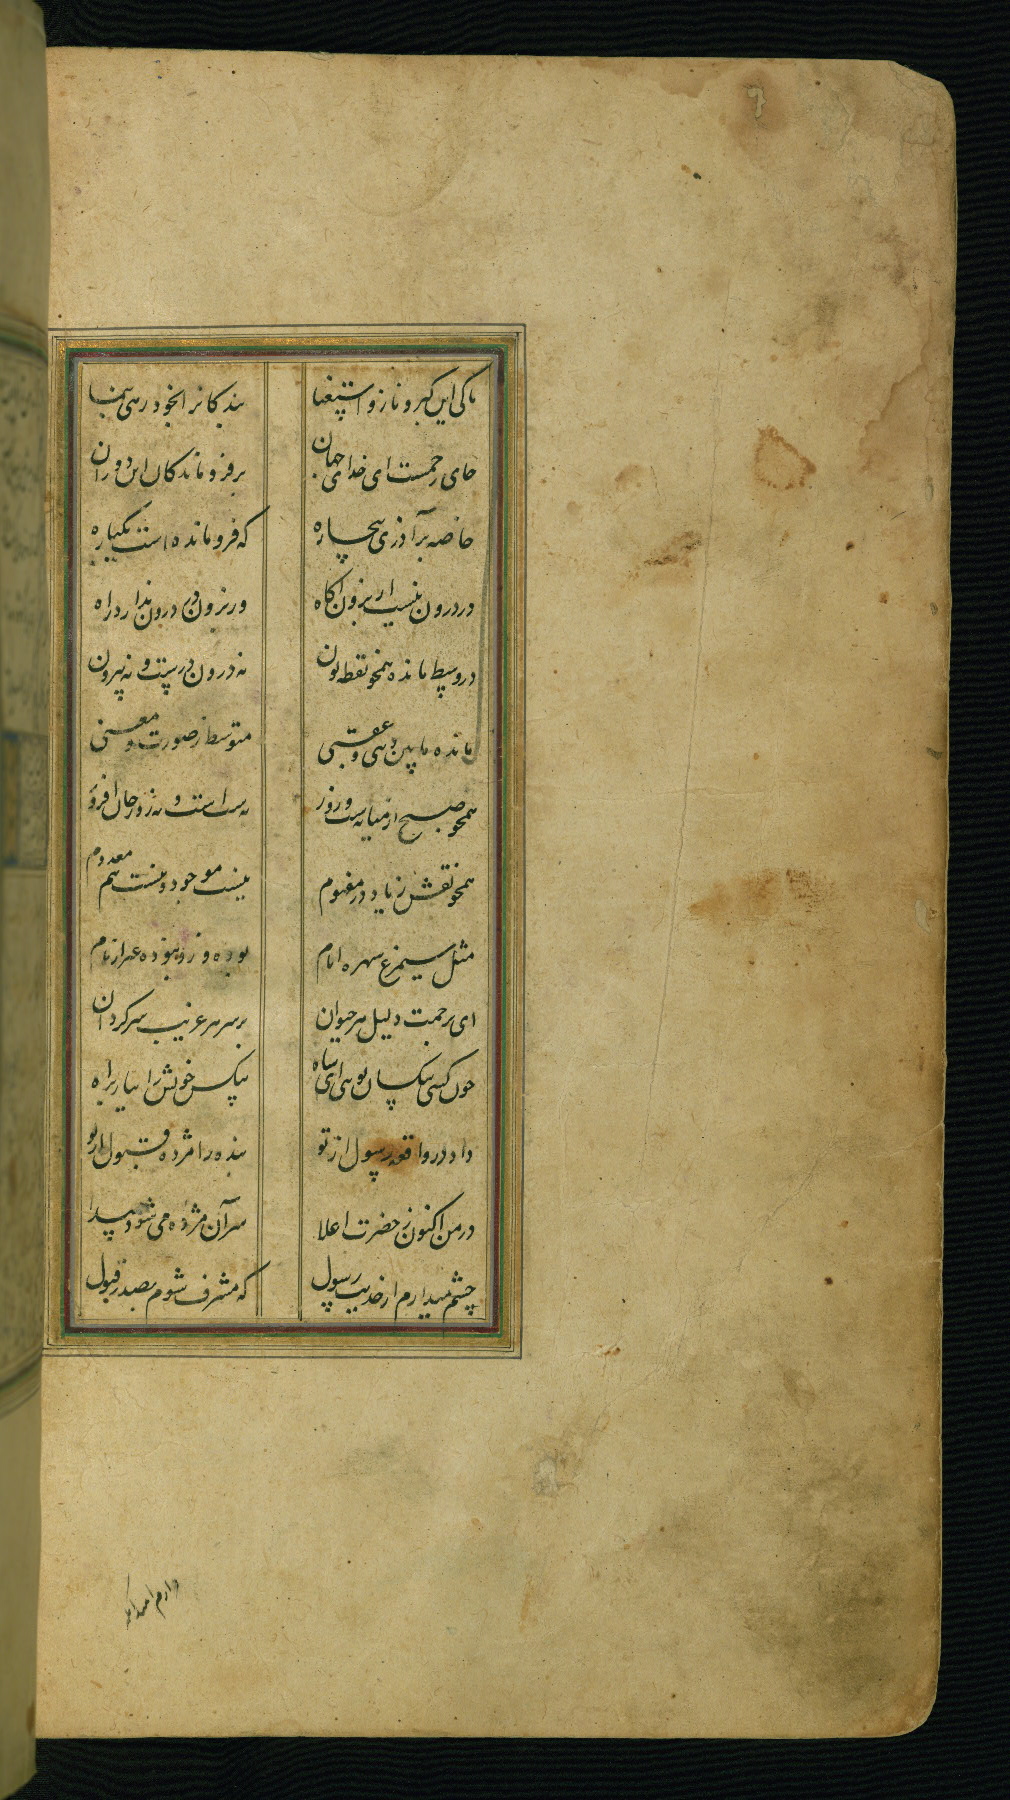 تا کی این کبر و ناز و استغنا بندگانرا بخود رهی بنما
جای رحمست ای خدای جهان بر فروماندگان این دوران
خاصه بر آذری بیچاره که فرومانده است یکباره
در درون نیست از برون آگاه وز برون در درون ندارد راه
در وسط مانده همچو نقطه نون نه درون درست و نه بیرون
مانده مابین دنیی و عقبی متوسط ز صورت و معنی
همچو صبح از میانه شب و روز نه شب است و نه روز جان افروز
همچو نقش زیاد در مفهوم نیست موجود و نیست هم معدوم
مثل سیمرغ شهره ایام بوده و زو نبوده غیر از نام
ای برحمت دلیل هر حیوان بر سر هر غریب سرگردان
چون کسی بیکسان توی ای شاه بیکس خویش را بیار براه
داد در واقعه رسول از تو بنده را مژده قبول از تو
در من اکنون ز حضرت اعلا سر آن مژده می شود پیدا
چشم میدارم از حدیث رسول که مشرف شوم بصدر قبول
دارم امید آنکه